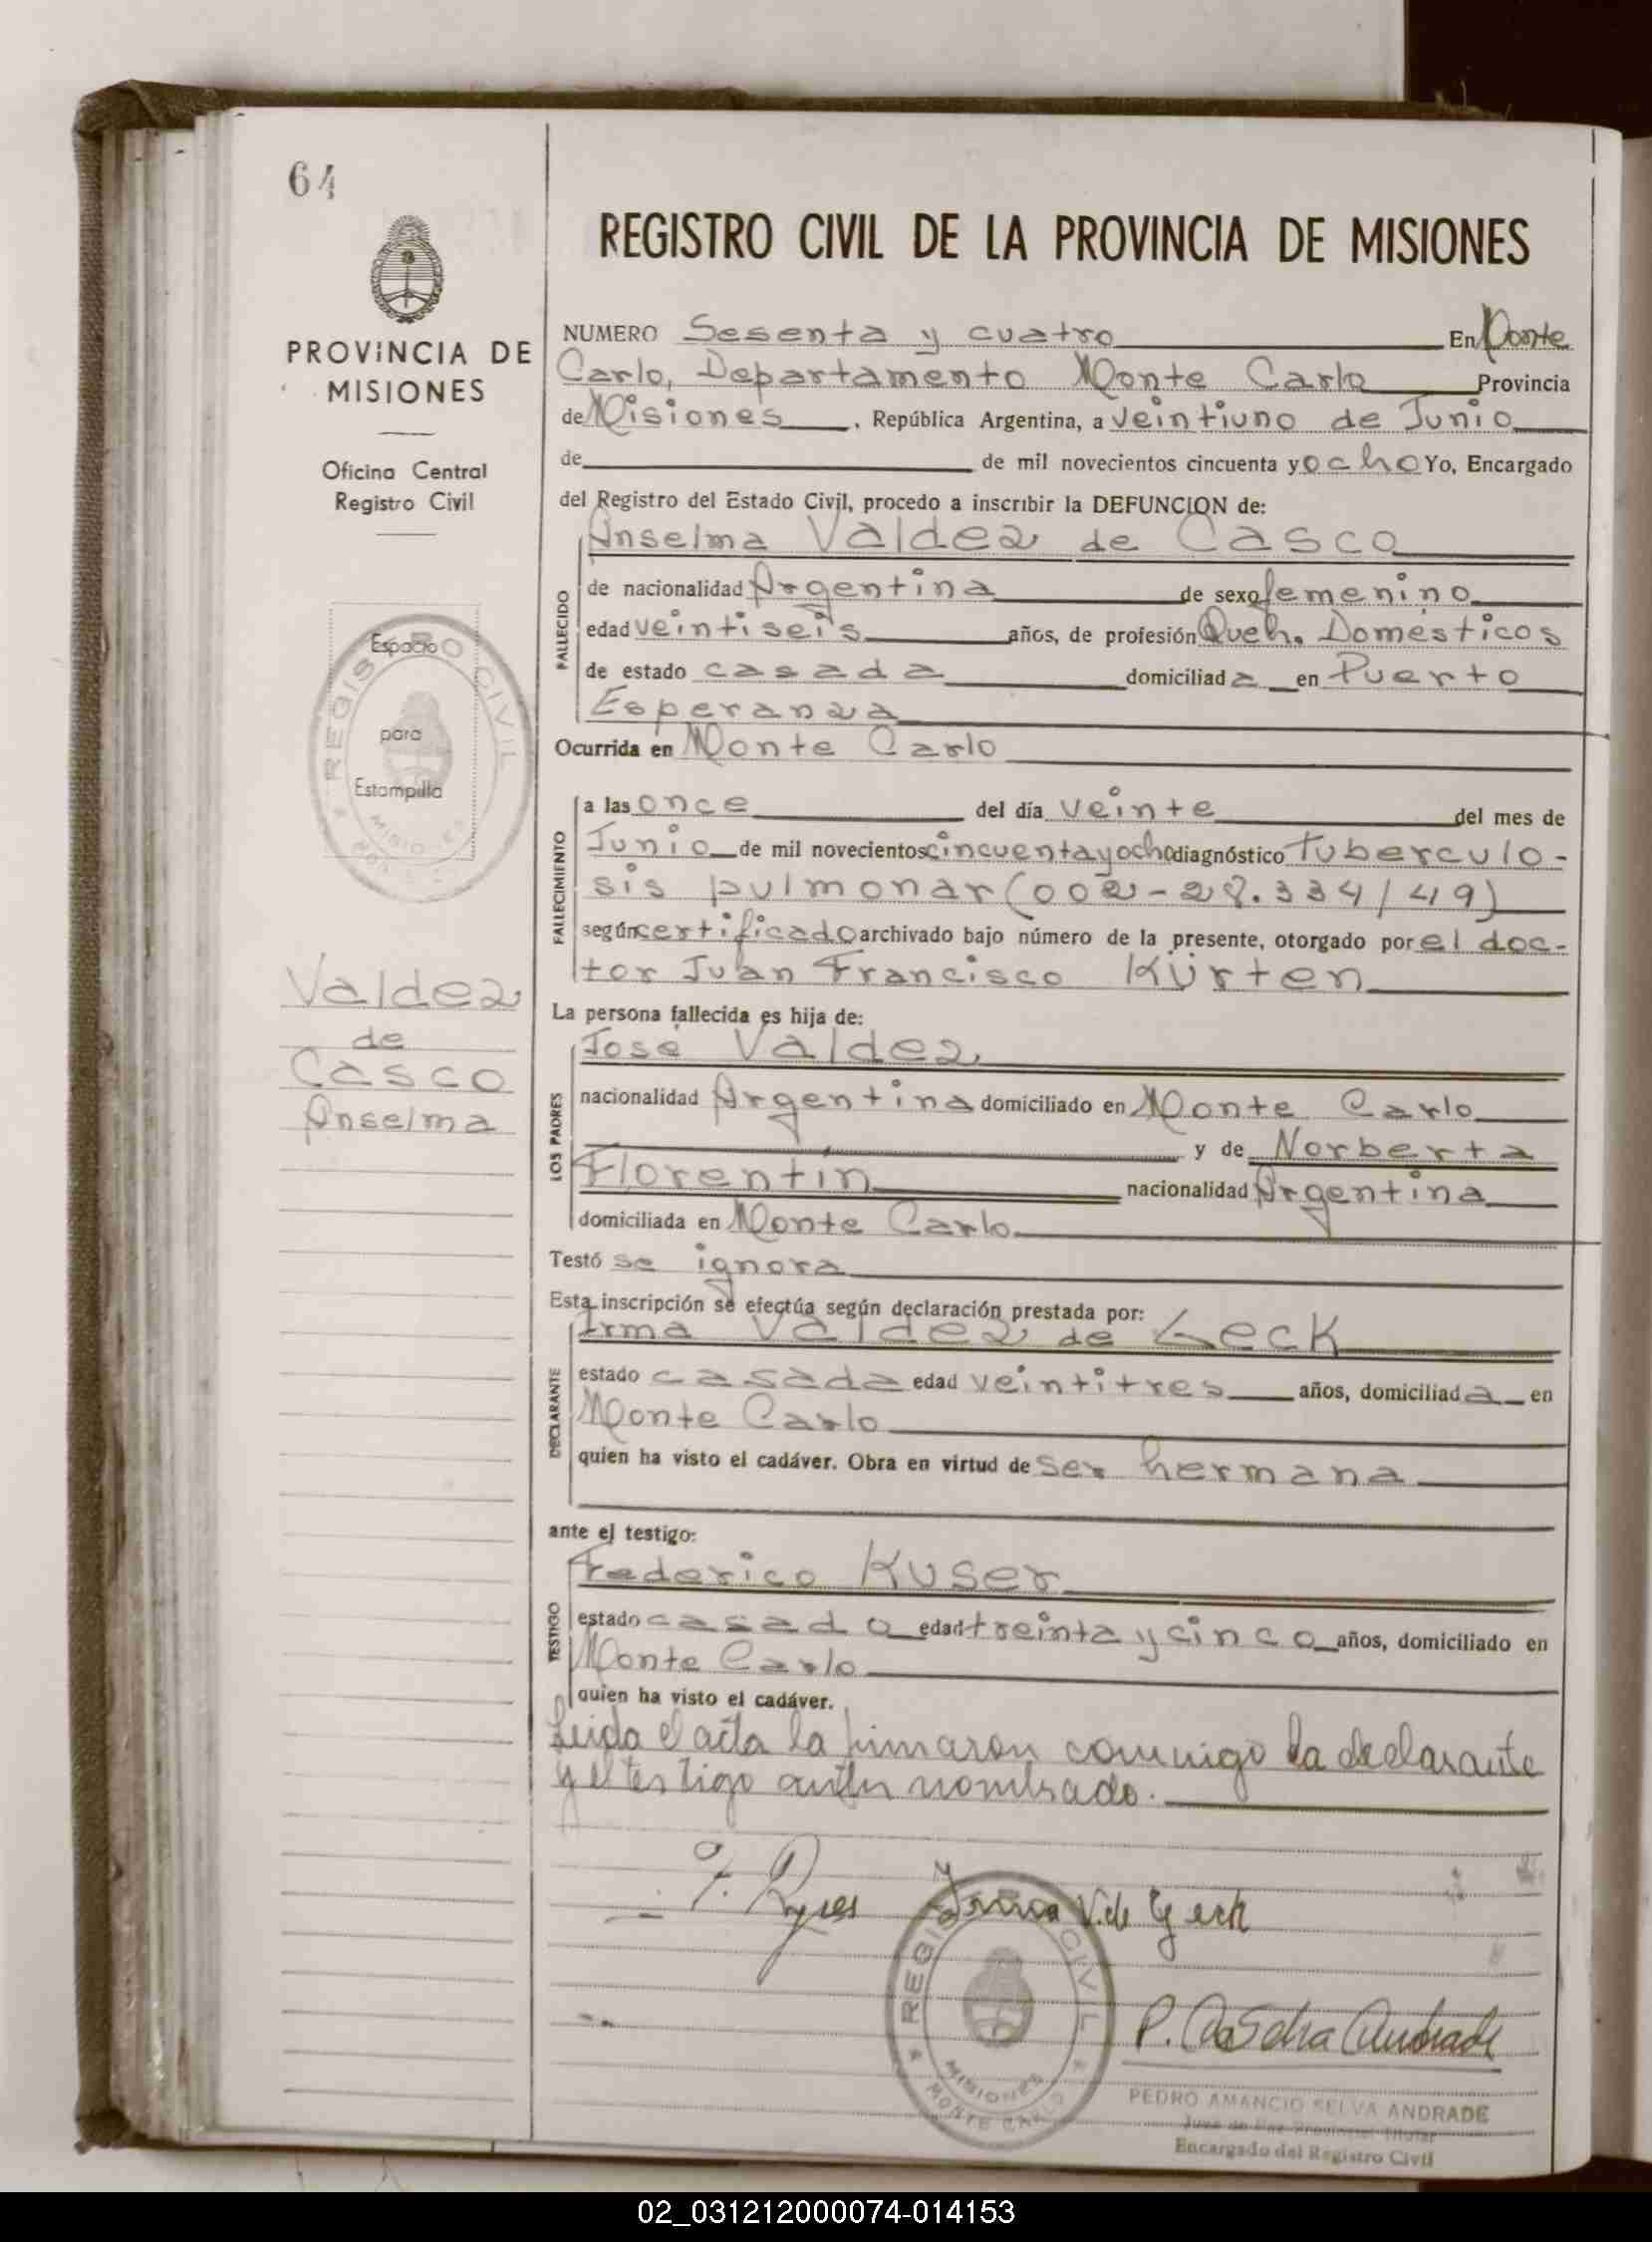 64
PROVINCIA DE
MISIONES
Oficina Central
Registro Civil
Espacio
para
Estampilla
REGISTRO CIVIL
MISIONES
Valdez
de
Casco
Anselma
REGISTRO CIVIL DE LA PROVINCIA DE MISIONES
NUMERO Sesenta y cuatro En Monte
Carlo, Departamento Monte Carlo Provincia
de Misiones, República Argentina, a veintiuno de Junio
de de mil novecientos cincuenta y ocho Yo, Encargado
del Registro del Estado Civil, procedo a inscribir la DEFUNCION de:
Anselma Valdez de Casco
FALLECIDO
de nacionalidad Argentina de sexo femenino
edad veintiseis años, de profesión Queh. Domésticos
de estado casada domiciliada en Puerto
Esperanza
Ocurrida en Monte Carlo
FALLECIMIENTO
a las once del día veinte del mes de
Junio de mil novecientos cincuenta y ocho diagnóstico tuberculo-
sis pulmonar (002-28.334/49)
según certificado archivado bajo número de la presente, otorgado por el doc-
tor Juan Francisco Kürten
La persona fallecida es hija de:
LOS PADRES
José Valdez
nacionalidad Argentina domiciliado en Monte Carlo
y de Norberta
Florentín nacionalidad Argentina
domiciliada en Monte Carlo
Testó se ignora
Esta inscripción se efectúa según declaración prestada por:
DECLARANTE
Irma Valdez de Geck
estado casada edad veintitres años, domiciliada en
Monte Carlo
quien ha visto el cadáver. Obra en virtud de ser hermana
ante el testigo:
TESTIGO
Federico Kuser
estado casado edad treinta y cinco años, domiciliado en
Monte Carlo
quien ha visto el cadáver.
Leida el acta la firmaron conmigo la declarante
y el testigo antes nombrado.
Irma V. de Geck
REGISTRO CIVIL
MISIONES
MONTE CARLO
PEDRO AMANCIO SELVA ANDRADE
Juez de Paz Provincial Titular
Encargado del Registro Civil
02_031212000074-014153